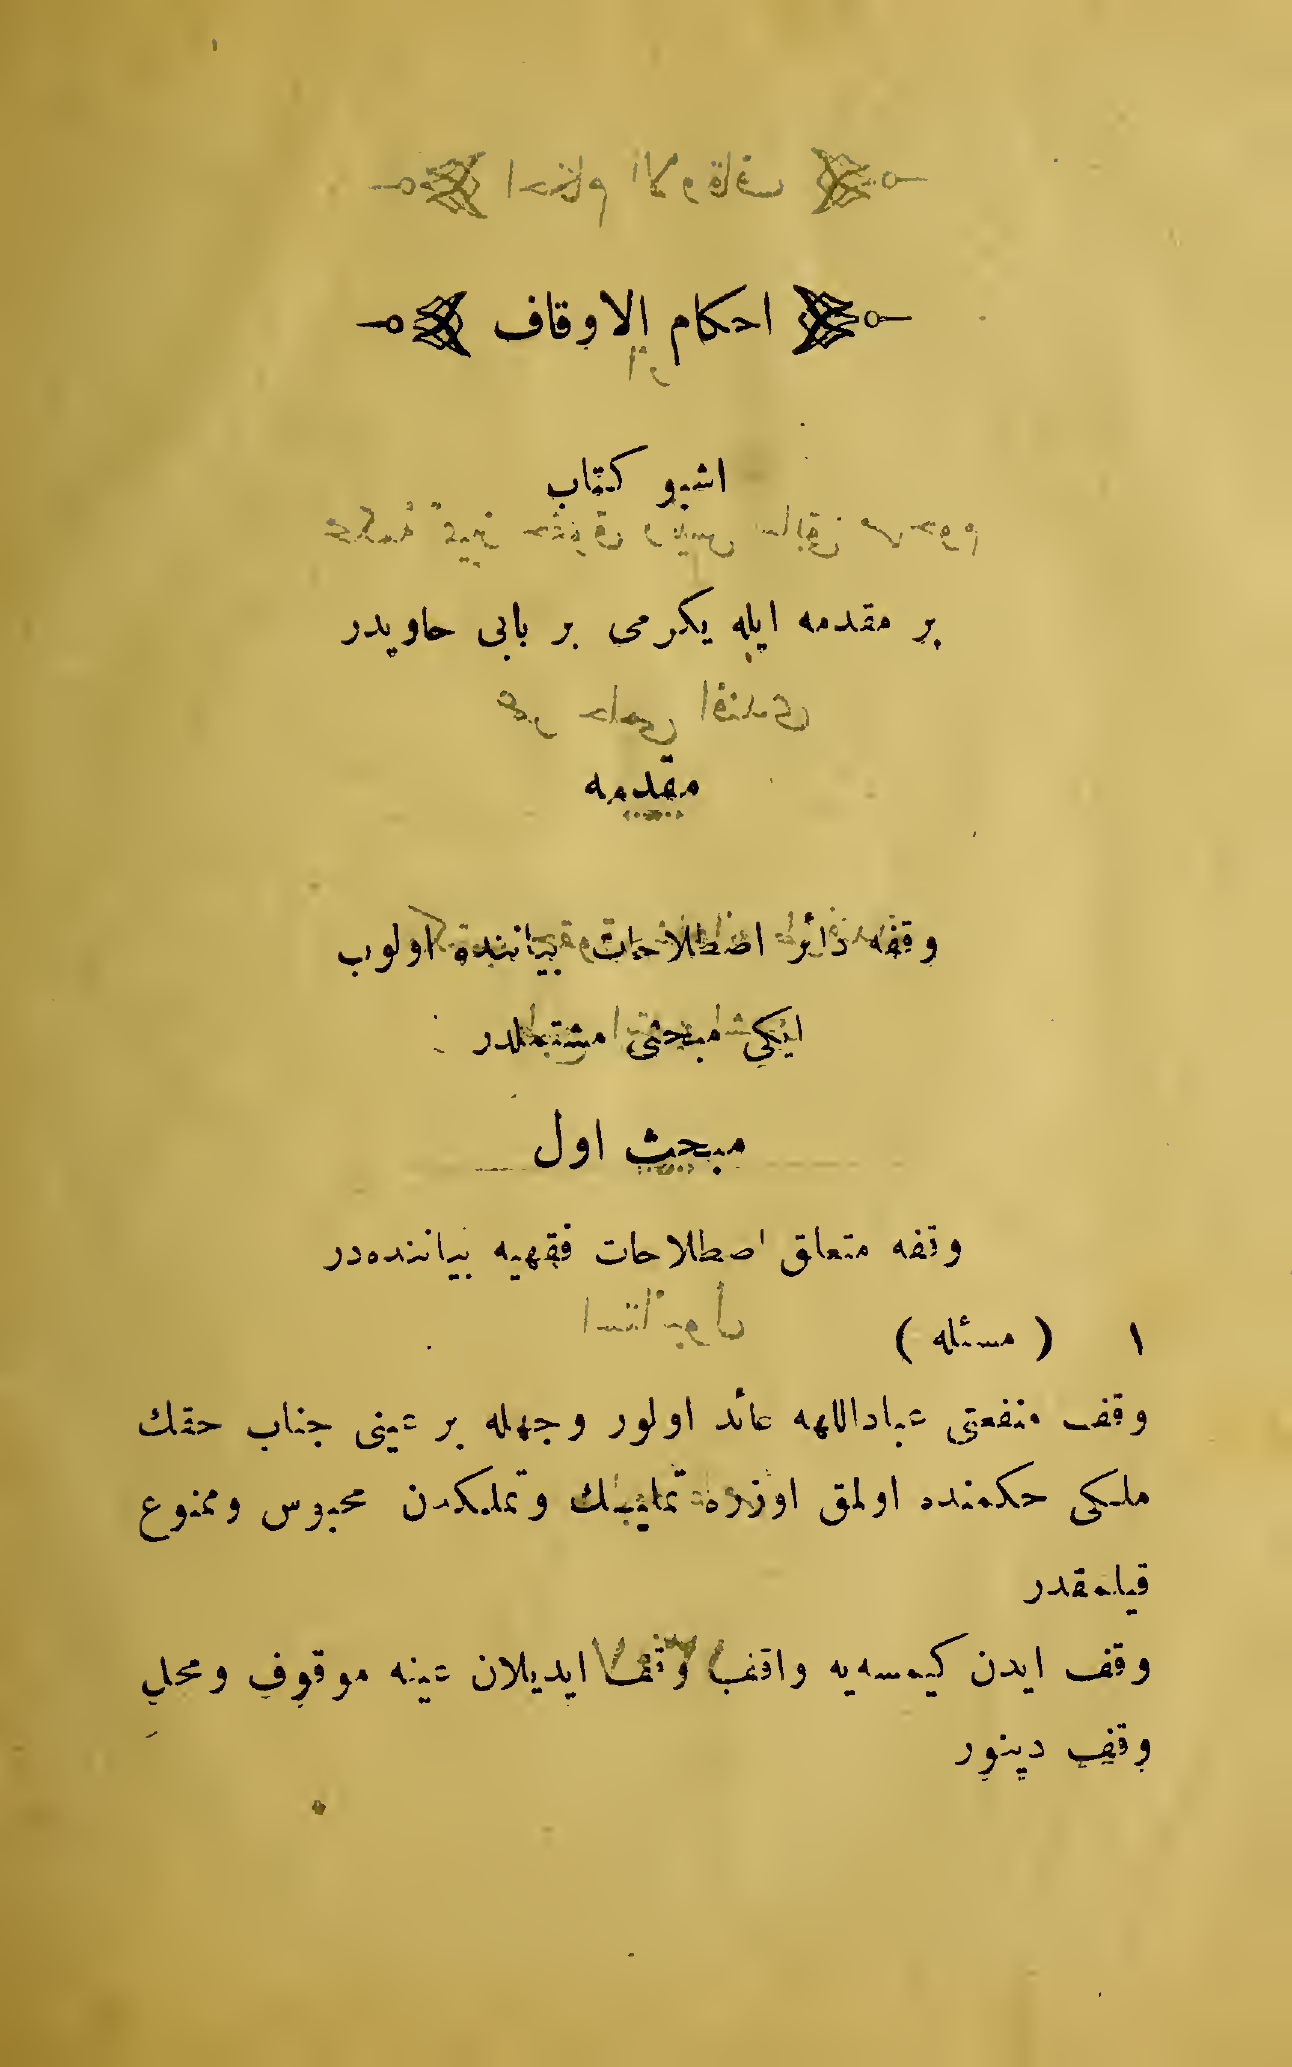 احكام الاوقاف
اشبو كتاب
بر مقدمه ايله يكرمى بر بابى حاويدر
مقدمه
وقفه دائر اصطلاحات بياننده اولوب
ايكى مبحثى مشتملدر
مبحث اول
وقفه متعلق اصطلاحات فقهيه بياننده‌در
١ ( مسئله )
وقف منفعتى عباداللهه عائد اولور وجهله بر عينى جناب حقك
ملكى حكمنده اولمق اوزره تمليك وتملكدن محبوس وممنوع
قيلمقدر
وقف ايدن كيمسه‌يه واقف وقف ايديلان عينه موقوف ومحل
وقف دينور